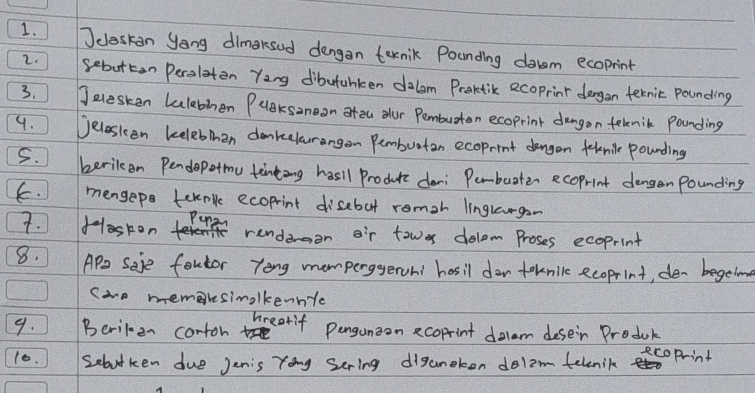 1. Jelaskan yang dimaksud dengan teknik Pounding dalam ecoprint
2. Sebutkan Peralatan Yang dibutuhkan dalam Praktik ecoprint dengan teknik pounding
3. Jelaskan kelebihan Pelaksanaan atau alur Pembuatan ecoprint dengan teknik Pounding
4. Jelaskan kelebihan dankekurangan Pembuatan ecoprint dengan teknik pounding
5. berikan Pendapatmu tentang hasil Produk dari Pembuatan ecoprint dengan pounding
6. mengapa teknik ecoprint disebut ramah lingkungan
7. Jelaskan Peran rendaman air tawas dalam Proses ecoprint
8. APa saja faktor Yang mempenggeruhi hasil dan teknik ecoprint, dan bagaimana
cara memaksimalkannya
9. Berikan contoh kreatif Pengunaan ecoprint dalam desain Produk
10. Sebutken dua jenis Yang sering digunakan dalam teknik ecoprint